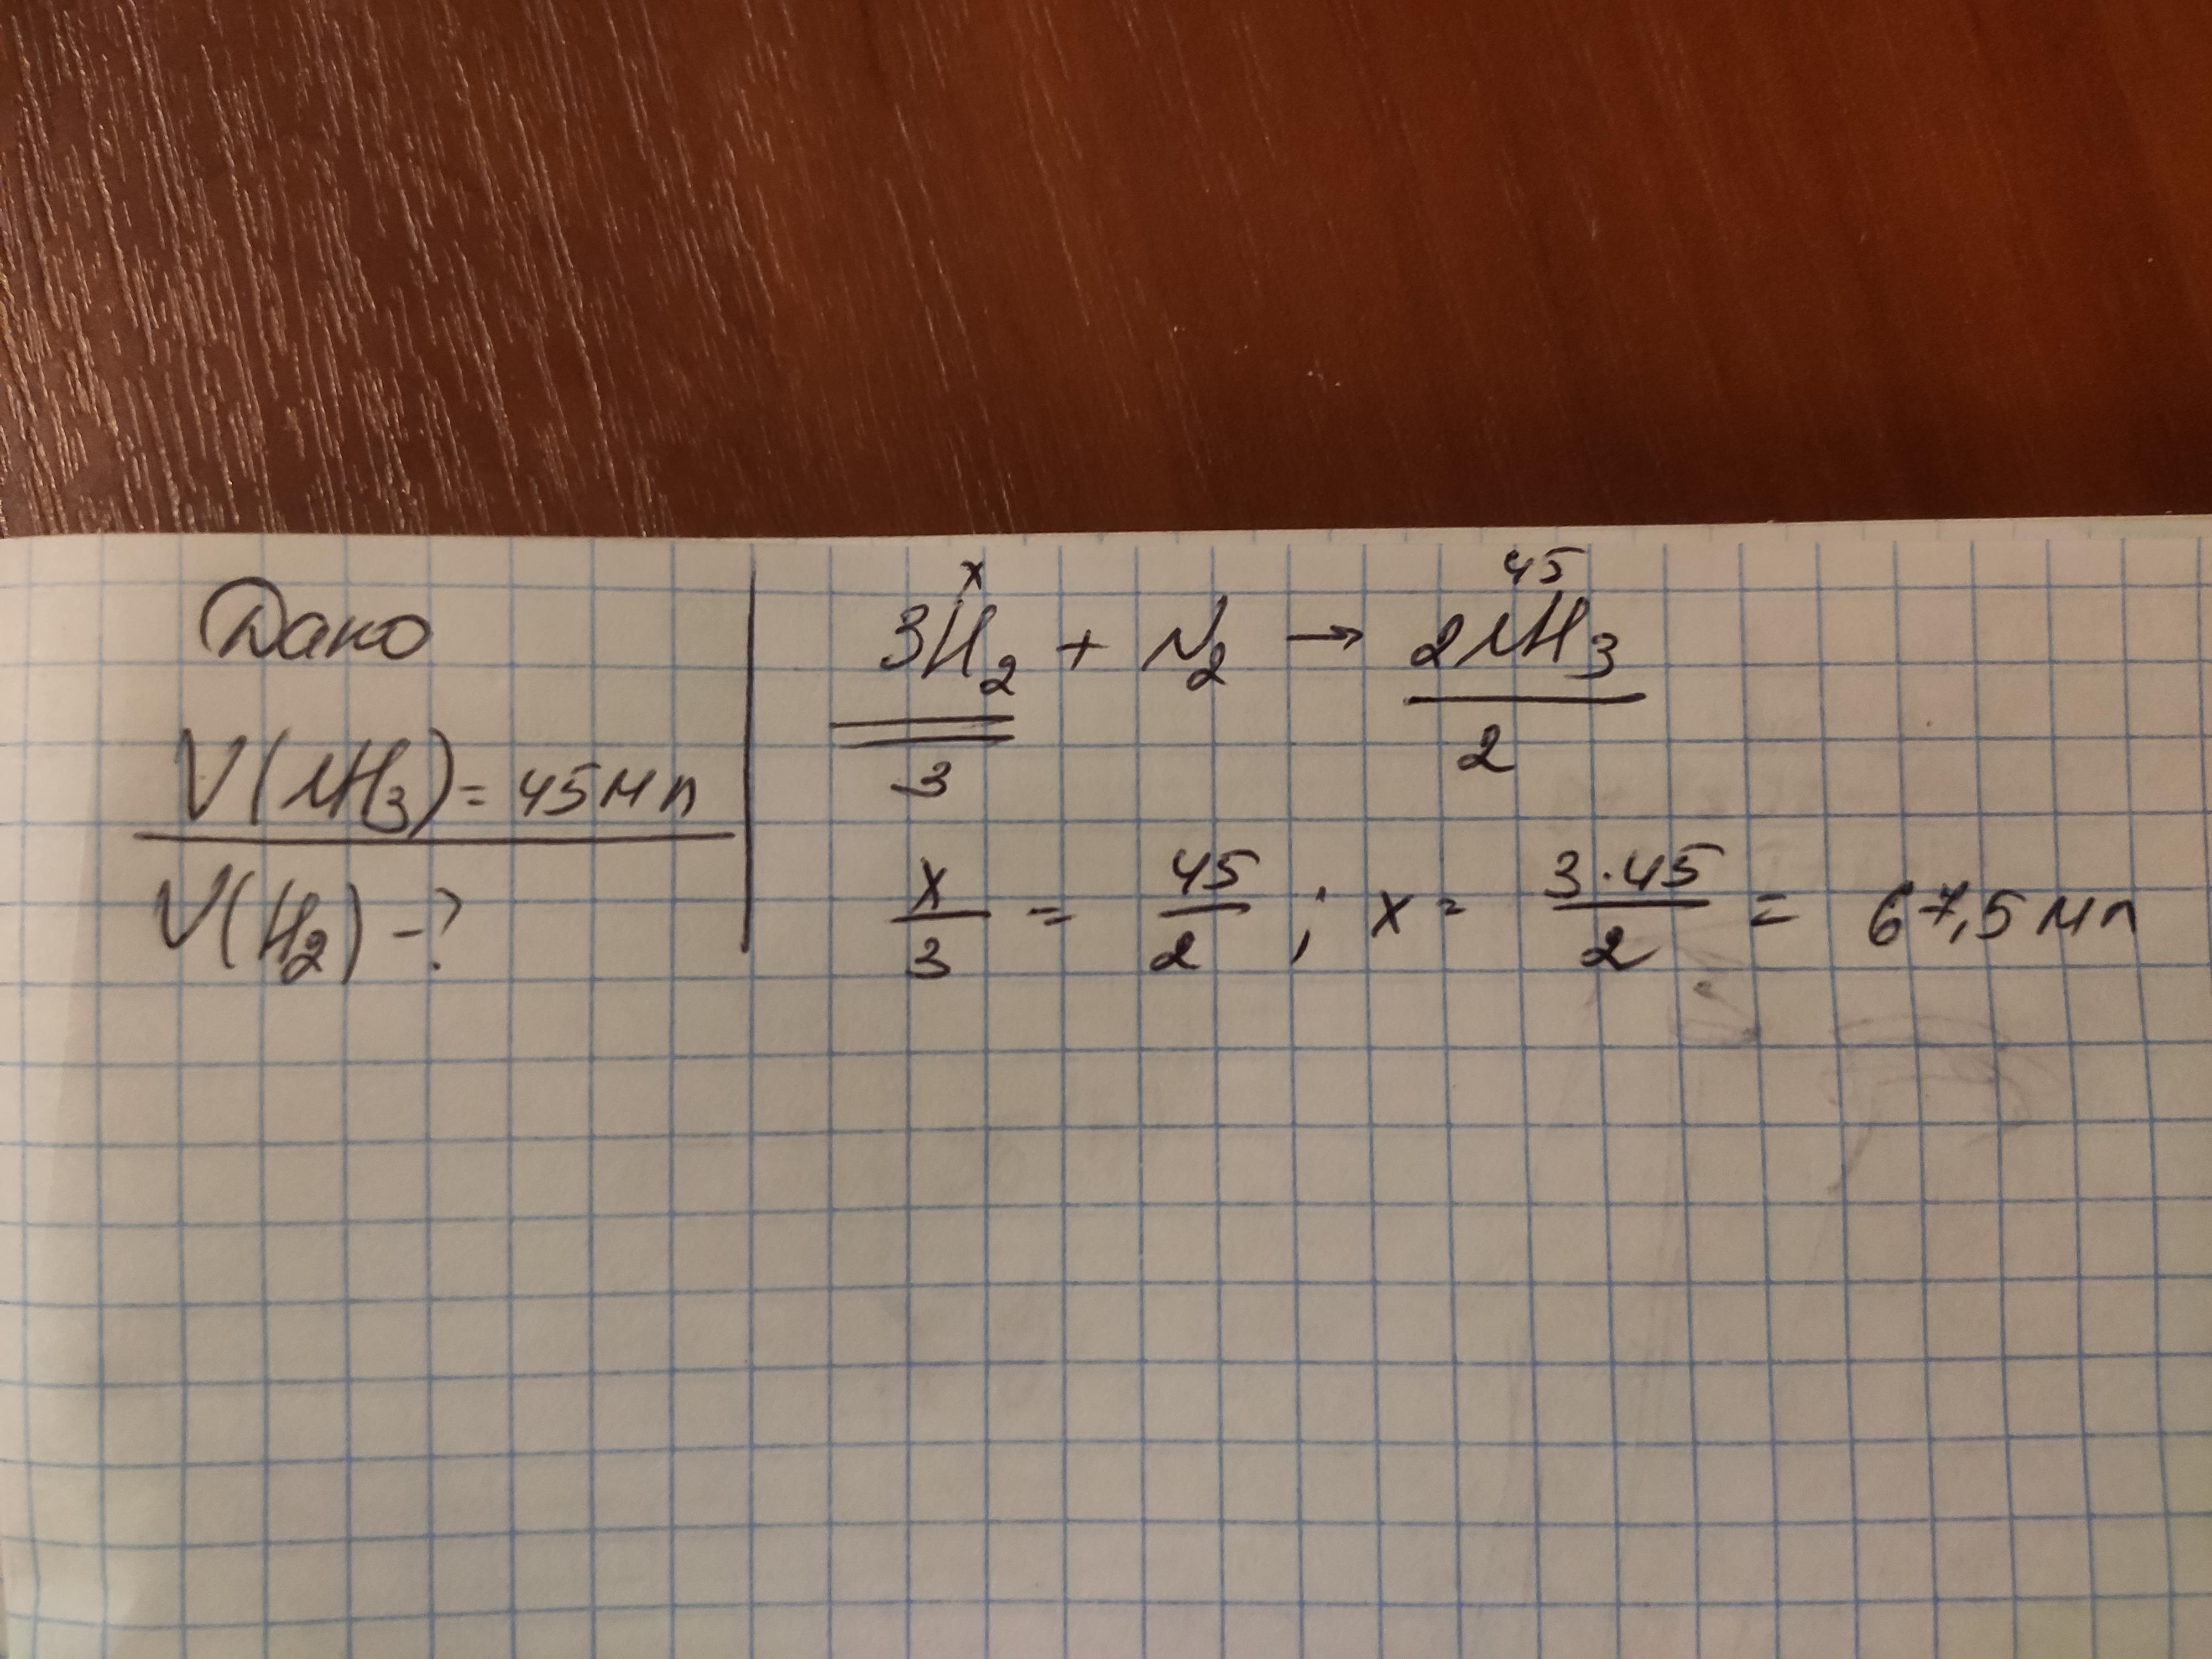 Дано
V(NH₃) = 45 мл
V(H₂) - ?
x 45
3H₂ + N₂ → 2NH₃
3 2
x/3 = 45/2 ; x = 3·45/2 = 67,5 мл